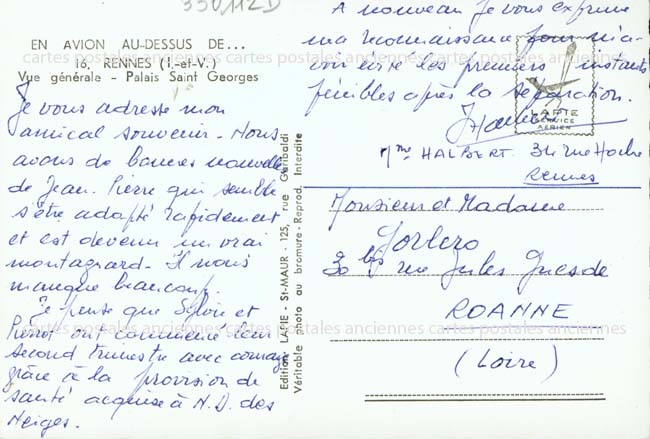 350112D
EN AVION AU-DESSUS DE...
16, RENNES (I.-et-V.)
Vue générale - Palais Saint Georges
Je vous adresse mon
amical souvenir. Nous
avons de bonnes nouvelles
de Jean. Pierre qui semble
s'être adapté rapidement
et est devenu un vrai
montagnard. Il nous
manque beaucoup.
Je pense que Sylvie et
Pierrot ont commencé leur
second trimestre avec courage
grâce à la provision de
santé acquise à N.D. des
Neiges.
A nouveau je vous exprime
ma reconnaissance pour m'a-
voir évité les premiers instants
pénibles après la séparation.
Mme HALBERT. 34 rue Hoche
Rennes
LAPIE
SERVICE
AÉRIEN
Monsieur et Madame
30 bis rue Jules Guesde
ROANNE
(Loire)
Edition LAPIE - St-MAUR - 125, rue Garibaldi
Véritable photo au bromure - Reprod. Interdite
cartes postales anciennes cartes postales anciennes cartes postales anciennes
cartes postales anciennes cartes postales anciennes cartes postales anciennes